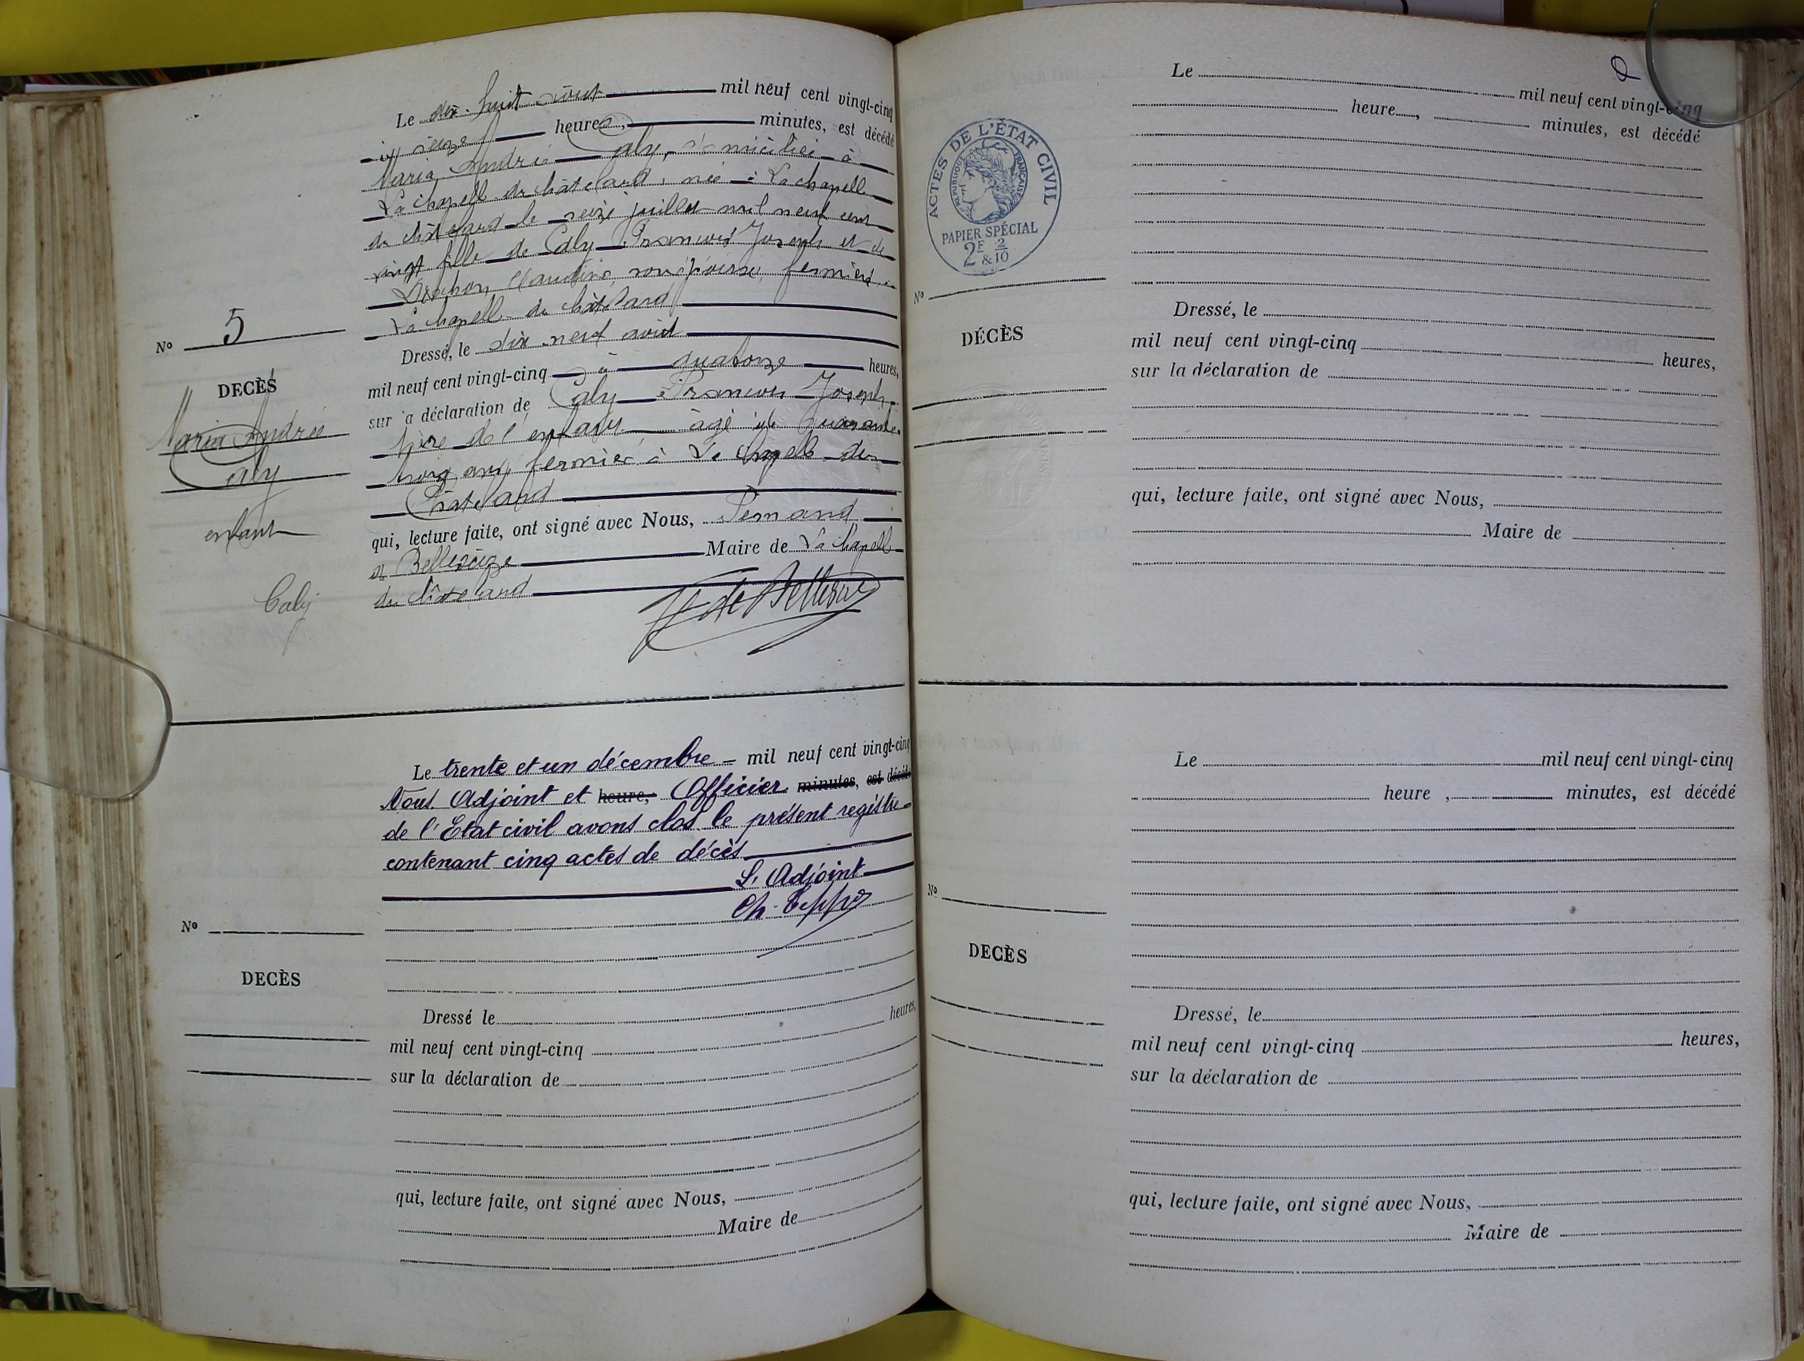 Le dix-huit août mil neuf cent vingt-cinq
à seize heures, minutes, est décédé
Maria Andrée Caly, domiciliée à
La Chapelle du Châtelard, née à La Chapelle
du Châtelard le seize juillet mil neuf cent
vingt fille de Caly François Joseph et de
Claudine, son épouse, fermiers
La Chapelle du Châtelard
Dressé, le dix neuf août
mil neuf cent vingt-cinq à quatorze heures,
sur la déclaration de Caly François Joseph
père de l'enfant âgé de quarante
ans fermier à La Chapelle du
Châtelard
qui, lecture faite, ont signé avec Nous, Fernand
de Bellescize Maire de La Chapelle
du Châtelard
F de Bellescize
No 5
DECÈS
Maria Andrée
Caly
enfant
Caly
Le trente et un décembre mil neuf cent vingt-cinq
Nous Adjoint et heure, Officier minutes, est décédé
de l'Etat civil avons clos le présent registre
contenant cinq actes de décès
L'Adjoint
Ch. Teppe
No
DECÈS
Dressé le
heures,
mil neuf cent vingt-cinq
sur la déclaration de
qui, lecture faite, ont signé avec Nous,
Maire de
Le mil neuf cent vingt-cinq
heure, minutes, est décédé
ACTES DE L'ÉTAT CIVIL
REPUBLIQUE FRANÇAISE
PAPIER SPÉCIAL
2F 2/10
&
No
DÉCÈS
Dressé, le
mil neuf cent vingt-cinq heures,
sur la déclaration de
qui, lecture faite, ont signé avec Nous,
Maire de
Le mil neuf cent vingt-cinq
heure, minutes, est décédé
No
DECÈS
Dressé, le
mil neuf cent vingt-cinq heures,
sur la déclaration de
qui, lecture faite, ont signé avec Nous,
Maire de